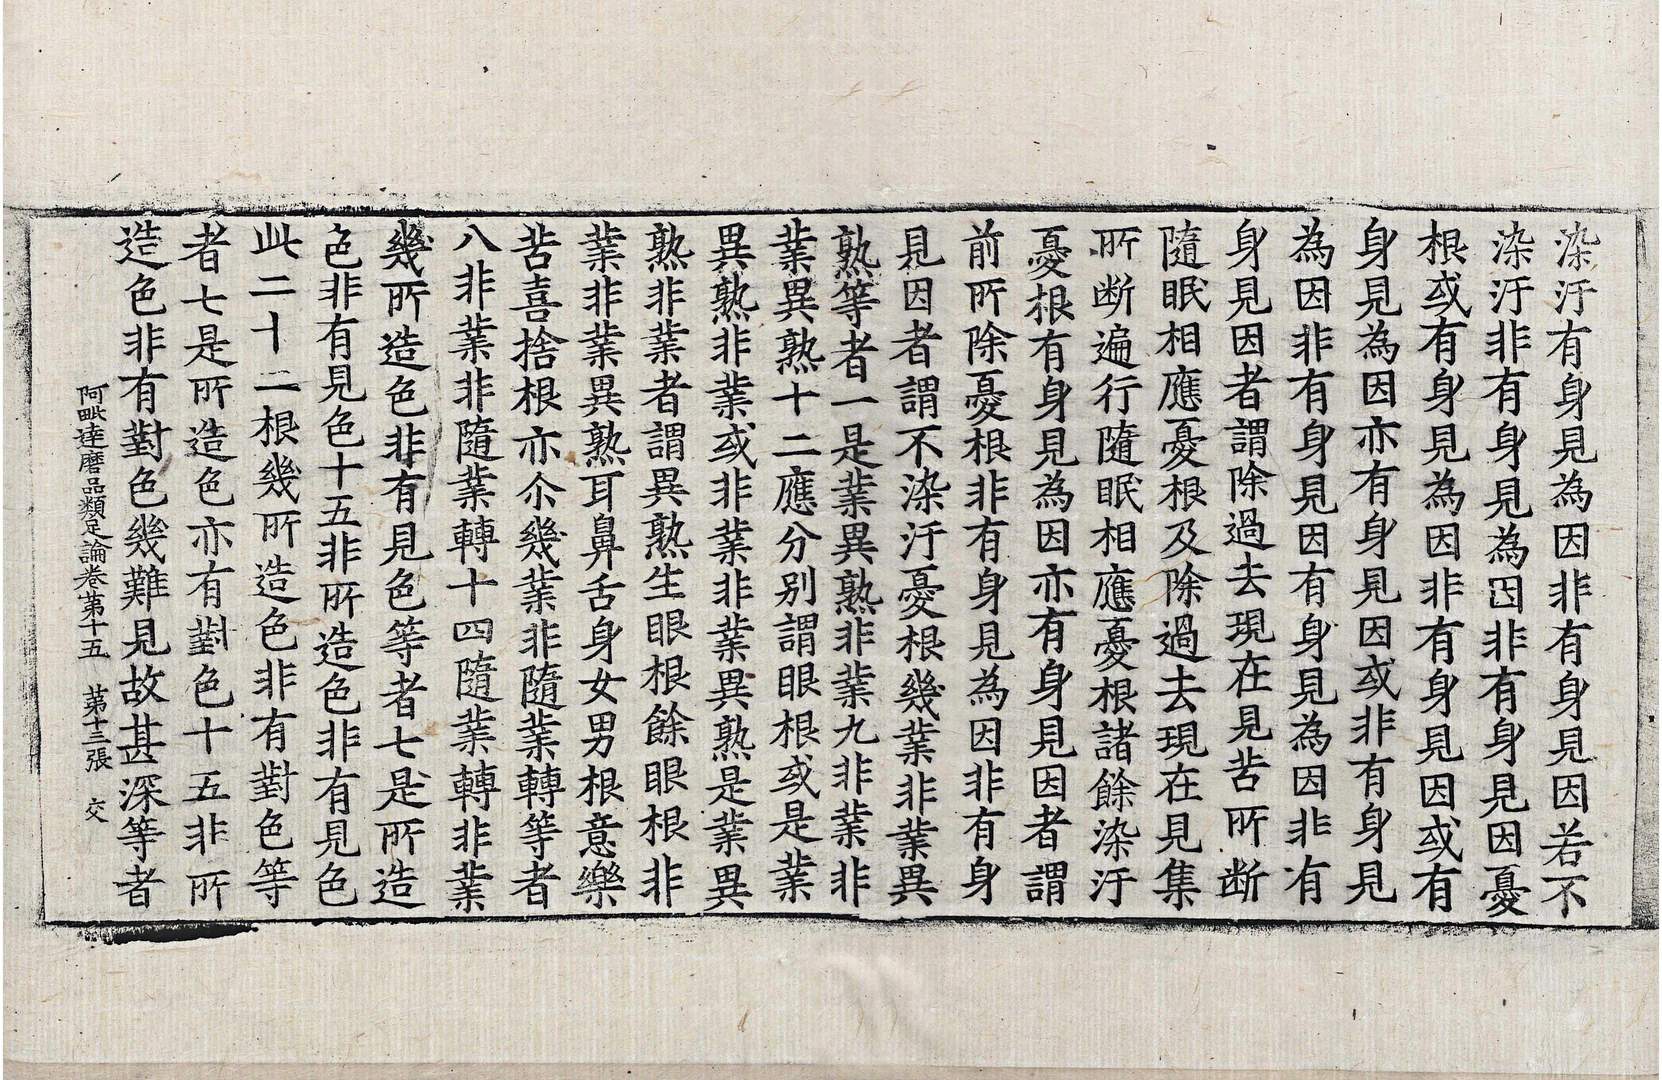 染汙有身見為因非有身見因若不
染汙非有身見為因非有身見因憂
根或有身見為因非有身見因或有
身見為因亦有身見因或非有身見
為因非有身見因有身見為因非有
身見因者謂除過去現在見苦所断
隨眠相應憂根及除過去現在見集
所断遍行隨眠相應憂根諸餘染汙
憂根有身見為因亦有身見因者謂
前所除憂根非有身見為因非有身
見因者謂不染汙憂根幾業非業異
熟等者一是業異熟非業九非業非
業異熟十二應分別謂眼根或是業
異熟非業或非業非業異熟是業異
熟非業者謂異熟生眼根餘眼根非
業非業異熟耳鼻舌身女男根意樂
苦喜捨根亦尒幾業非隨業轉等者
八非業非隨業轉十四隨業轉非業
幾所造色非有見色等者七是所造
色非有見色十五非所造色非有見色
此二十二根幾所造色非有對色等
者七是所造色亦有對色十五非所
造色非有對色幾難見故甚深等者
阿毗達磨品類足論卷第十五 第十三張 交